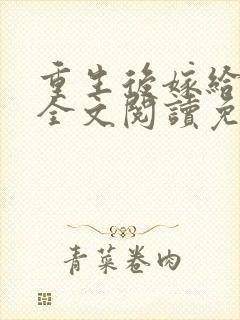 重生後嫁給
全文閱讀免
青菜卷肉